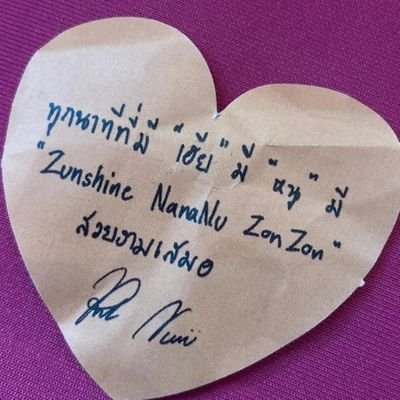 ทุกนาทีที่มี "เฮีย" มี "หนู" มี
"Zunshine NanaNu ZonZon"
สวยงามเสมอ